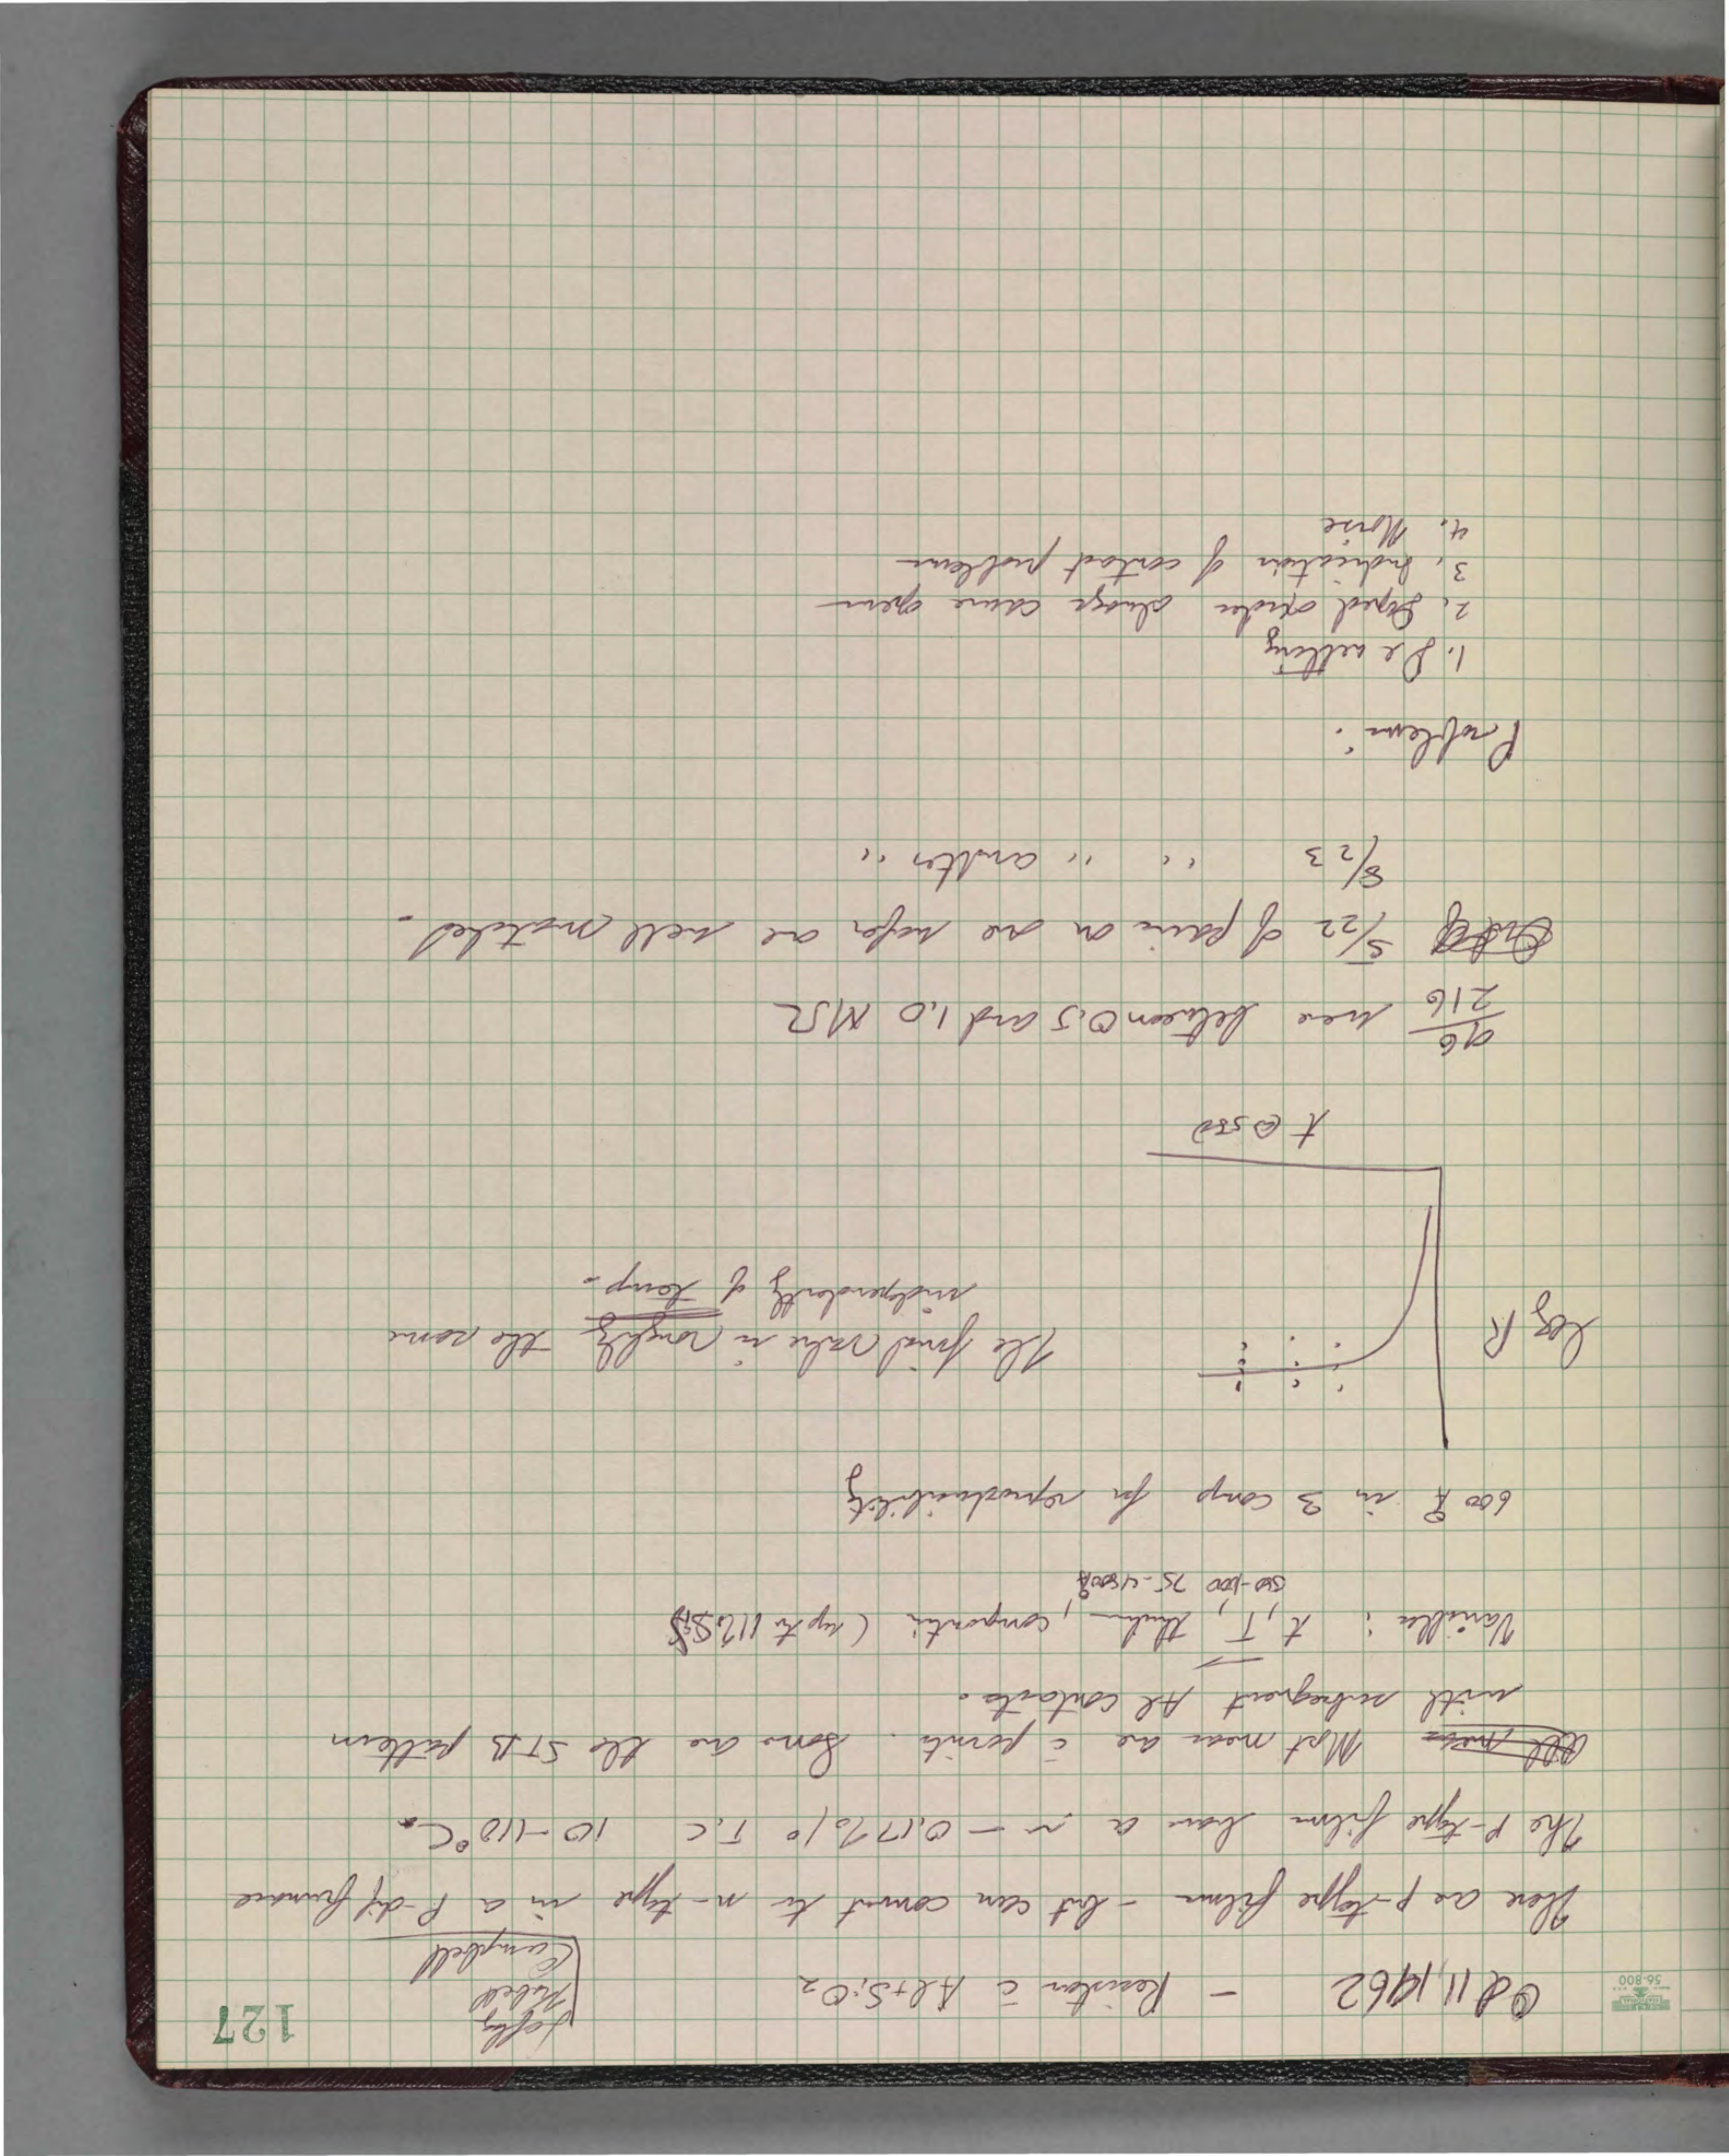 127
56-800
Oct 11, 1962 – Resistor c̄ Al + SiO2
Campbell
These are p-type films – but can convert to n-type in a P-dif furnace
The p-type films have a ~ – 0.17%/° T.C 10-110°C.
All meas Most meas are c̄ points. Some are the STB pattern
with subsequent Al contacts.
Variables: t, T, thickn, composition (up to 11% Si
500-1000 75-4500Å
600 Å in 3 comp for reproducibility
log R
The final value is roughly the same
independently of temp.
t @ 550
96/216 were between 0.5 and 1.0 MΩ
5/22 of pairs on one wafer are well matched.
8/23 " " another "
Problems:
1. De wetting
2. always cause opens
3. Indication of contact problems
4. Noise